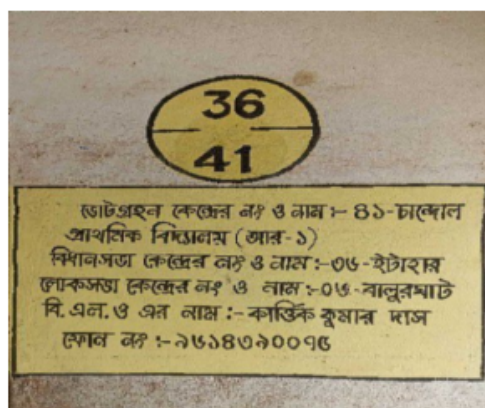 36
41
ভোটগ্রহন কেন্দ্রের নং ও নাম :- ৪১-চান্দোল
প্রাথমিক বিদ্যালয় (আর-১)
বিধানসভা কেন্দ্রের নং ও নাম :-৩৬-ইটাহার
লোকসভা কেন্দ্রের নং ও নাম :-০৬-বালুরঘাট
বি.এল.ও এর নাম :- কার্ত্তিক কুমার দাস
ফোন নং :-৯৬১৪৩৯০০৭৫